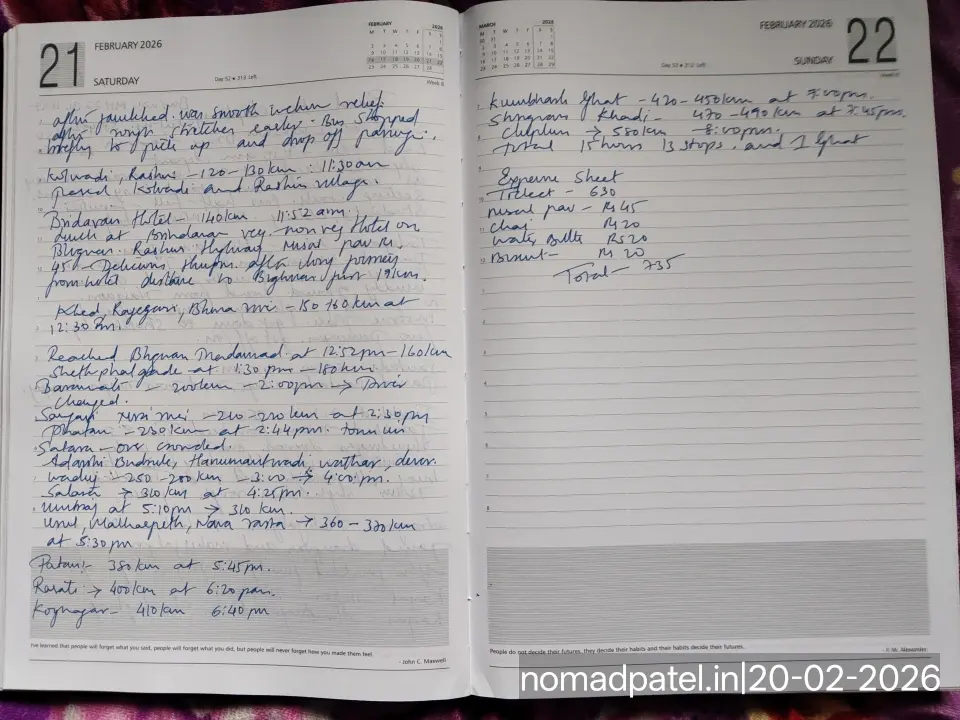 21
FEBRUARY 2026
SATURDAY
Day 52 • 313 Left
FEBRUARY 2026
M T W T F S S
Week 8
after was smooth relief.
after rough stretches earlier. Bus stopped
briefly to pick up and drop off
Kolvadi, Rashin - 120 - 130 km : 11:30 am
Kolvadi and Rashin village.
Hotel - 140 km 11:52 am.
Lunch at veg-non veg Hotel on
Bhigwan Rashin Highway misal pav Rs
45 - Delicious after long journey
from hotel distance to Bhigwan just 19 km.
Khed, Bhima - 150 160 km at
12:30 Pm.
Reached Bhigwan at 12:52 pm - 160 km
at 1:30 pm - 180 km
Baramati - 200 km - 2:00 pm →
changed.
- 210 - 220 km at 2:30 pm
Phaltan - 230 km at 2:44 pm.
Satara - over crowded.
Hanumantwadi, wathar,
- 250 - 280 km - 3:00 → 4:00 pm.
Satara → 310 km at 4:25 pm.
Umbraj at 5:10 pm → 310 km.
Malharpeth, Nava rasta → 360 - 380 km
at 5:30 pm
Patan :- 380 km at 5:45 pm.
→ 400 km at 6:20 pm.
Koynagar - 410 km 6:40 pm
I've learned that people will forget what you said, people will forget what you did, but people will never forget how you made them feel.
- John C. Maxwell
MARCH 2026
M T W T F S S
Day 53 • 312 Left
FEBRUARY 2026
22
SUNDAY
Kumbharli Ghat - 420 - 450 km at 7:00 pm.
Khadi - 470 - 490 km at 7:45 pm.
Chiplun → 580 km - 8:00 pm.
Total 15 hours 13 stops, and 1 Ghat
Expense Sheet
Ticket - 630
Misal pav - Rs 45
Chai Rs 20
Water Bottle Rs 20
Biscuit - Rs 20
Total - 735
People do not decide their futures, they decide their habits and their habits decide their futures.
- F. M. Alexander
nomadpatel.in|20-02-2026